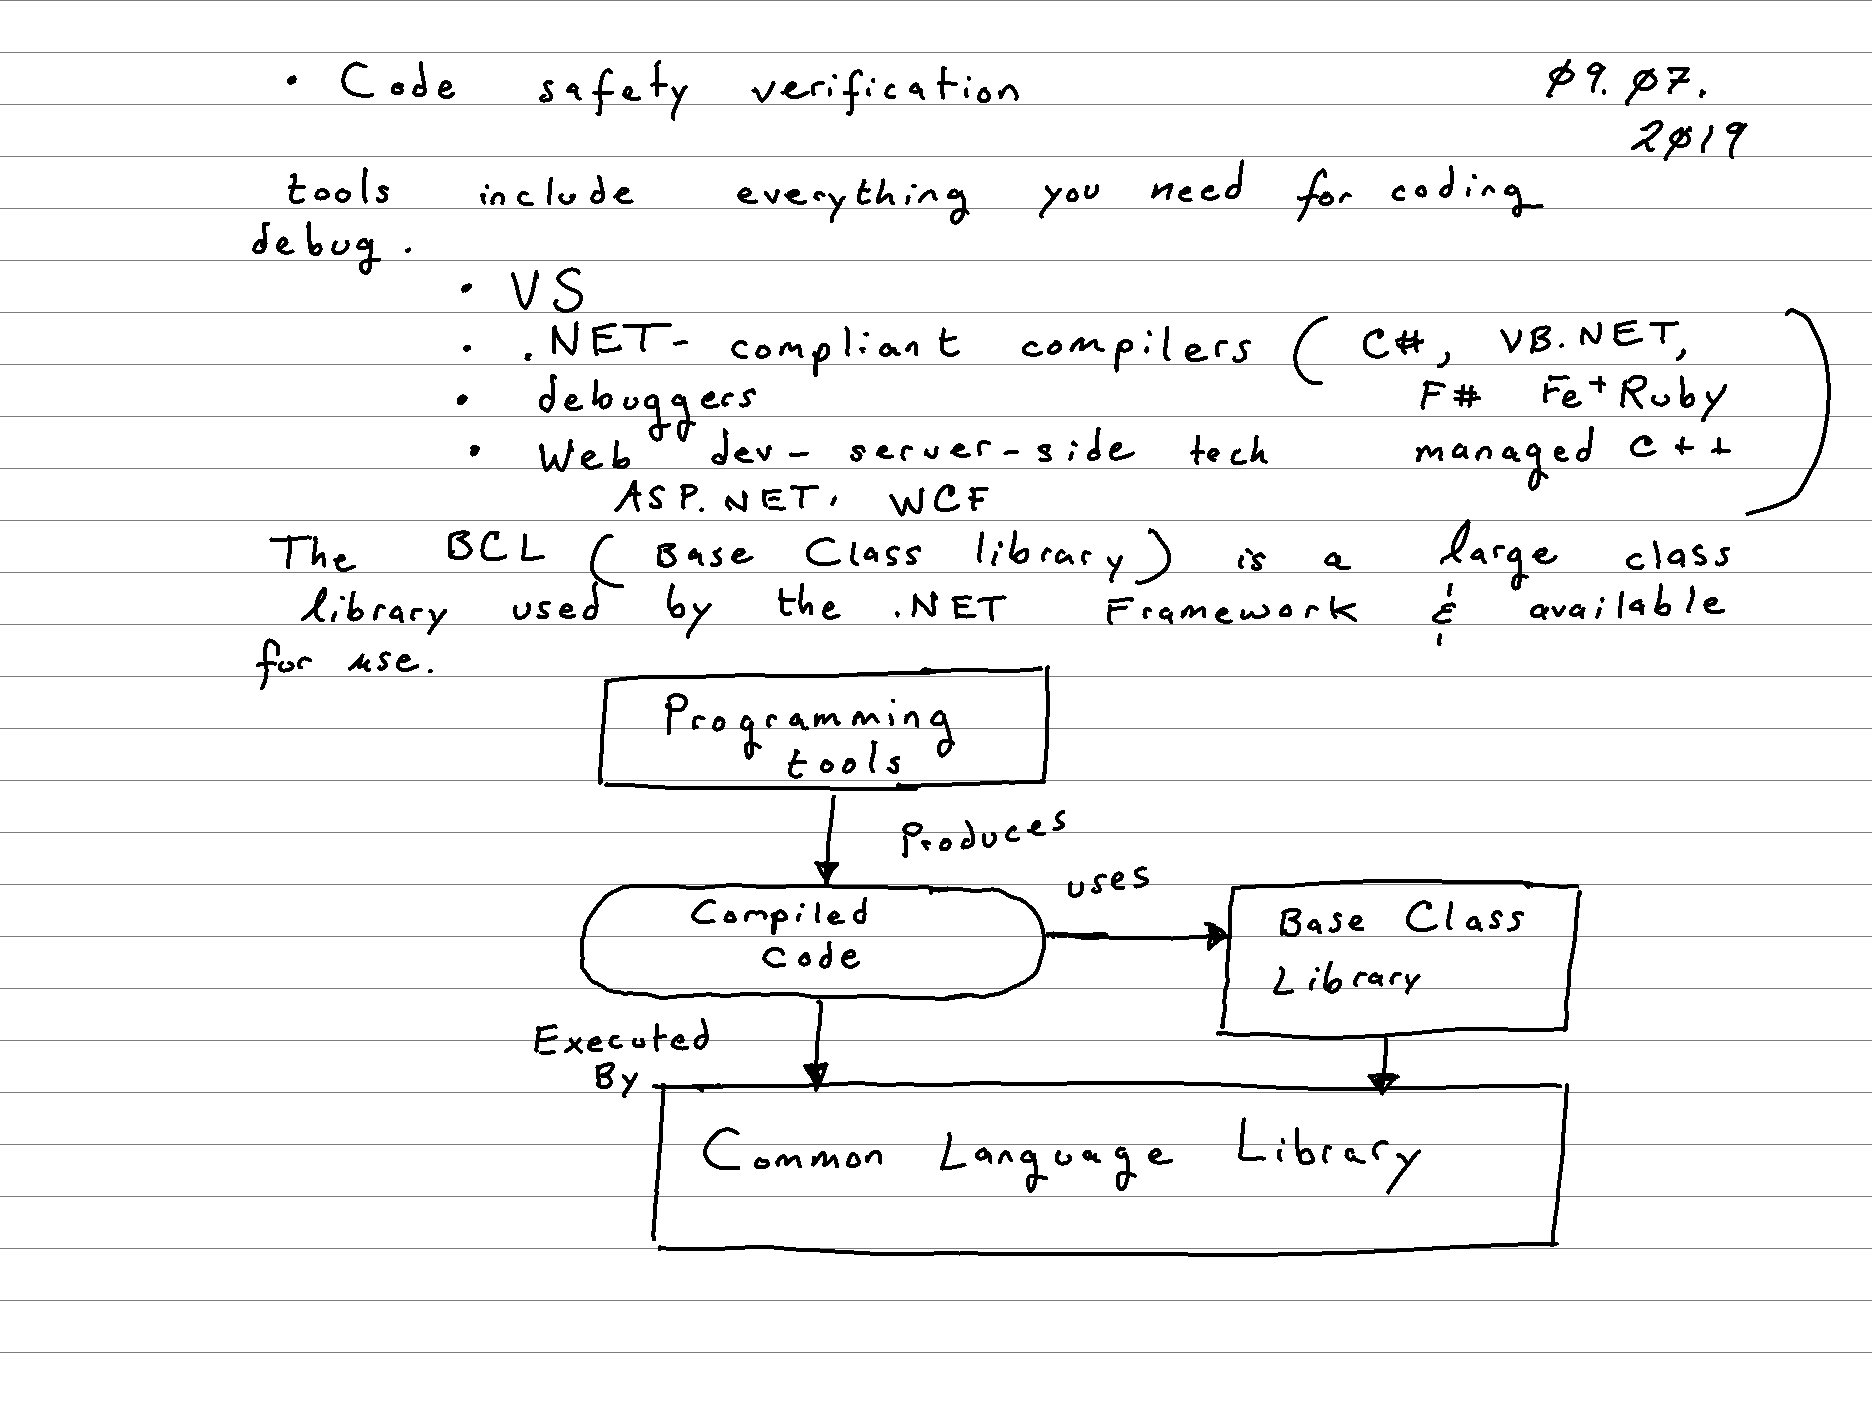 • Code safety verification
09.07.
2019
tools include everything you need for coding
debug.
• VS
• .NET- compliant compilers ( C#, VB.NET,
• debuggers F# Fe+Ruby
• Web dev - server-side tech managed C++ )
ASP.NET, WCF
The BCL ( Base Class library) is a large class
library used by the .NET Framework & available
for use.
Programming
tools
Produces
uses
Compiled
Code
Base Class
Library
Executed
By
Common Language Library